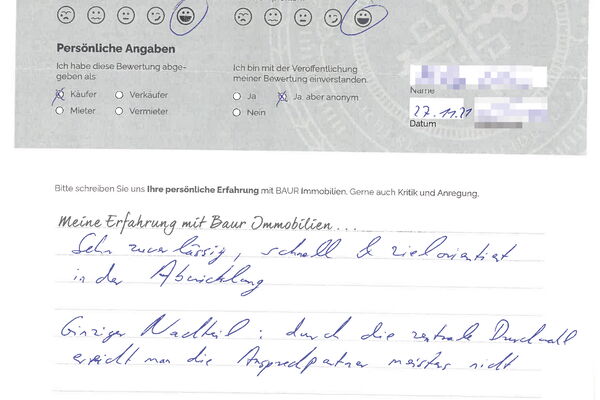 Persönliche Angaben
Ich habe diese Bewertung abge-
geben als
Käufer
Verkäufer
Mieter
Vermieter
Ich bin mit der Veröffentlichung
meiner Bewertung einverstanden.
Ja
Ja, aber anonym
Nein
Name
27.11.21
Datum
Bitte schreiben Sie uns Ihre persönliche Erfahrung mit BAUR Immobilien. Gerne auch Kritik und Anregung.
Meine Erfahrung mit Baur Immobilien...
Sehr zuverlässig, schnell & zielorientiert
in der Abwicklung
Einziger Nachteil: durch die zentrale Durchwahl
erreicht man die Ansprechpartner meistens nicht